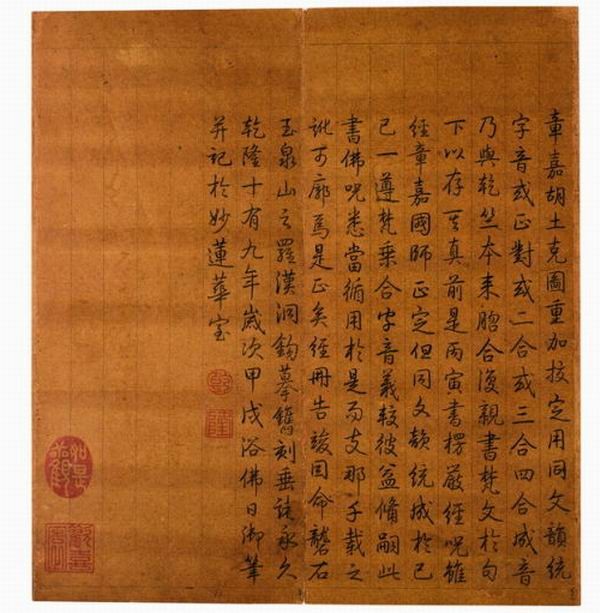 章嘉胡土克圖重加挍定用同文韻統
字音或正對或二合或三合四合成音
乃與乾竺本来脗合復親書梵文於句
下以存其真前是丙寅書楞嚴經呪雖
經章嘉國師正定但同文韻統成於己
巳一遵梵乘合字音義較彼益備嗣此
書佛呪悉當循用於是而支那千載之
訛可廓焉是正矣經冊告竣因命礱石
玉泉山之羅漢洞鈎摹鐫刻垂諸永久
乾隆十有九年歲次甲戌浴佛日御筆
并記於妙蓮華室
乾
隆
如是觀